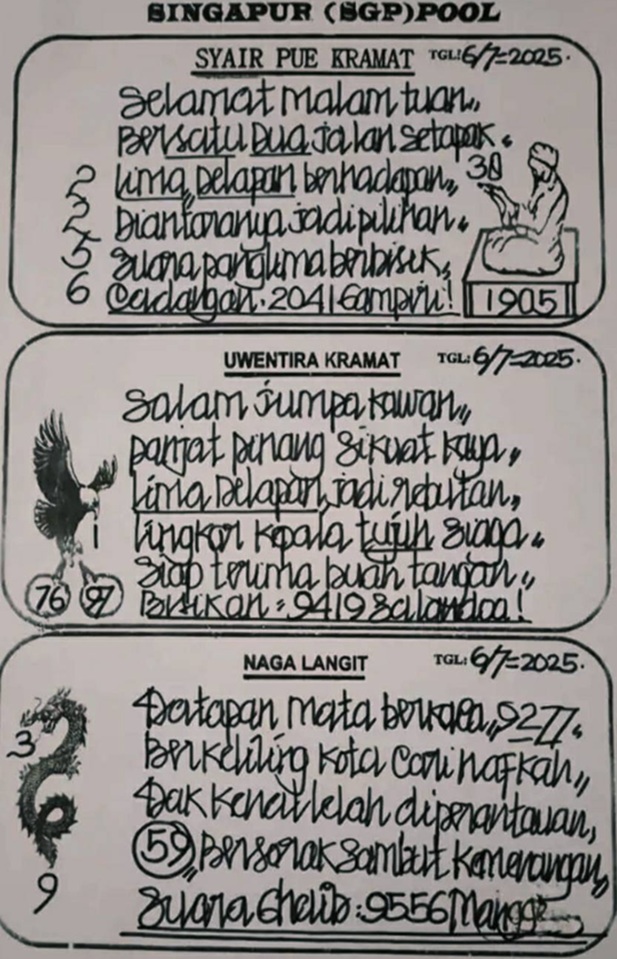 SINGAPUR (SGP)POOL
SYAIR PUE KRAMAT TGL: 6/7=2025.
Selamat malam tuan,,
Bersatu Dua jalan setapak.
2 Lima, Delapan berhadapan,, 30
2 Diantaranya jadi pilihan.
5 Suara panglima berbisik,
6 Cadangan. 2041 Gampiri!
1905
UWENTIRA KRAMAT TGL: 6/7=2025.
Salam jumpa kawan,,
panjat pinang Sikuat kaya,,
Lima Delapan, jadi rebutan,
1 lingkar kepala tujuh siaga.
Siap terima buah tangan,,
76 97 Bisikan: 9419
NAGA LANGIT TGL: 6/7=2025.
Datapan mata berkaca,, 9277.
3 Berkeliling kota Cari nafkah,,
Dak Kenal lelah diperantauan,
59,, Bersorak Sambut Kemenangan,
9 Suara Ghaib: 9556